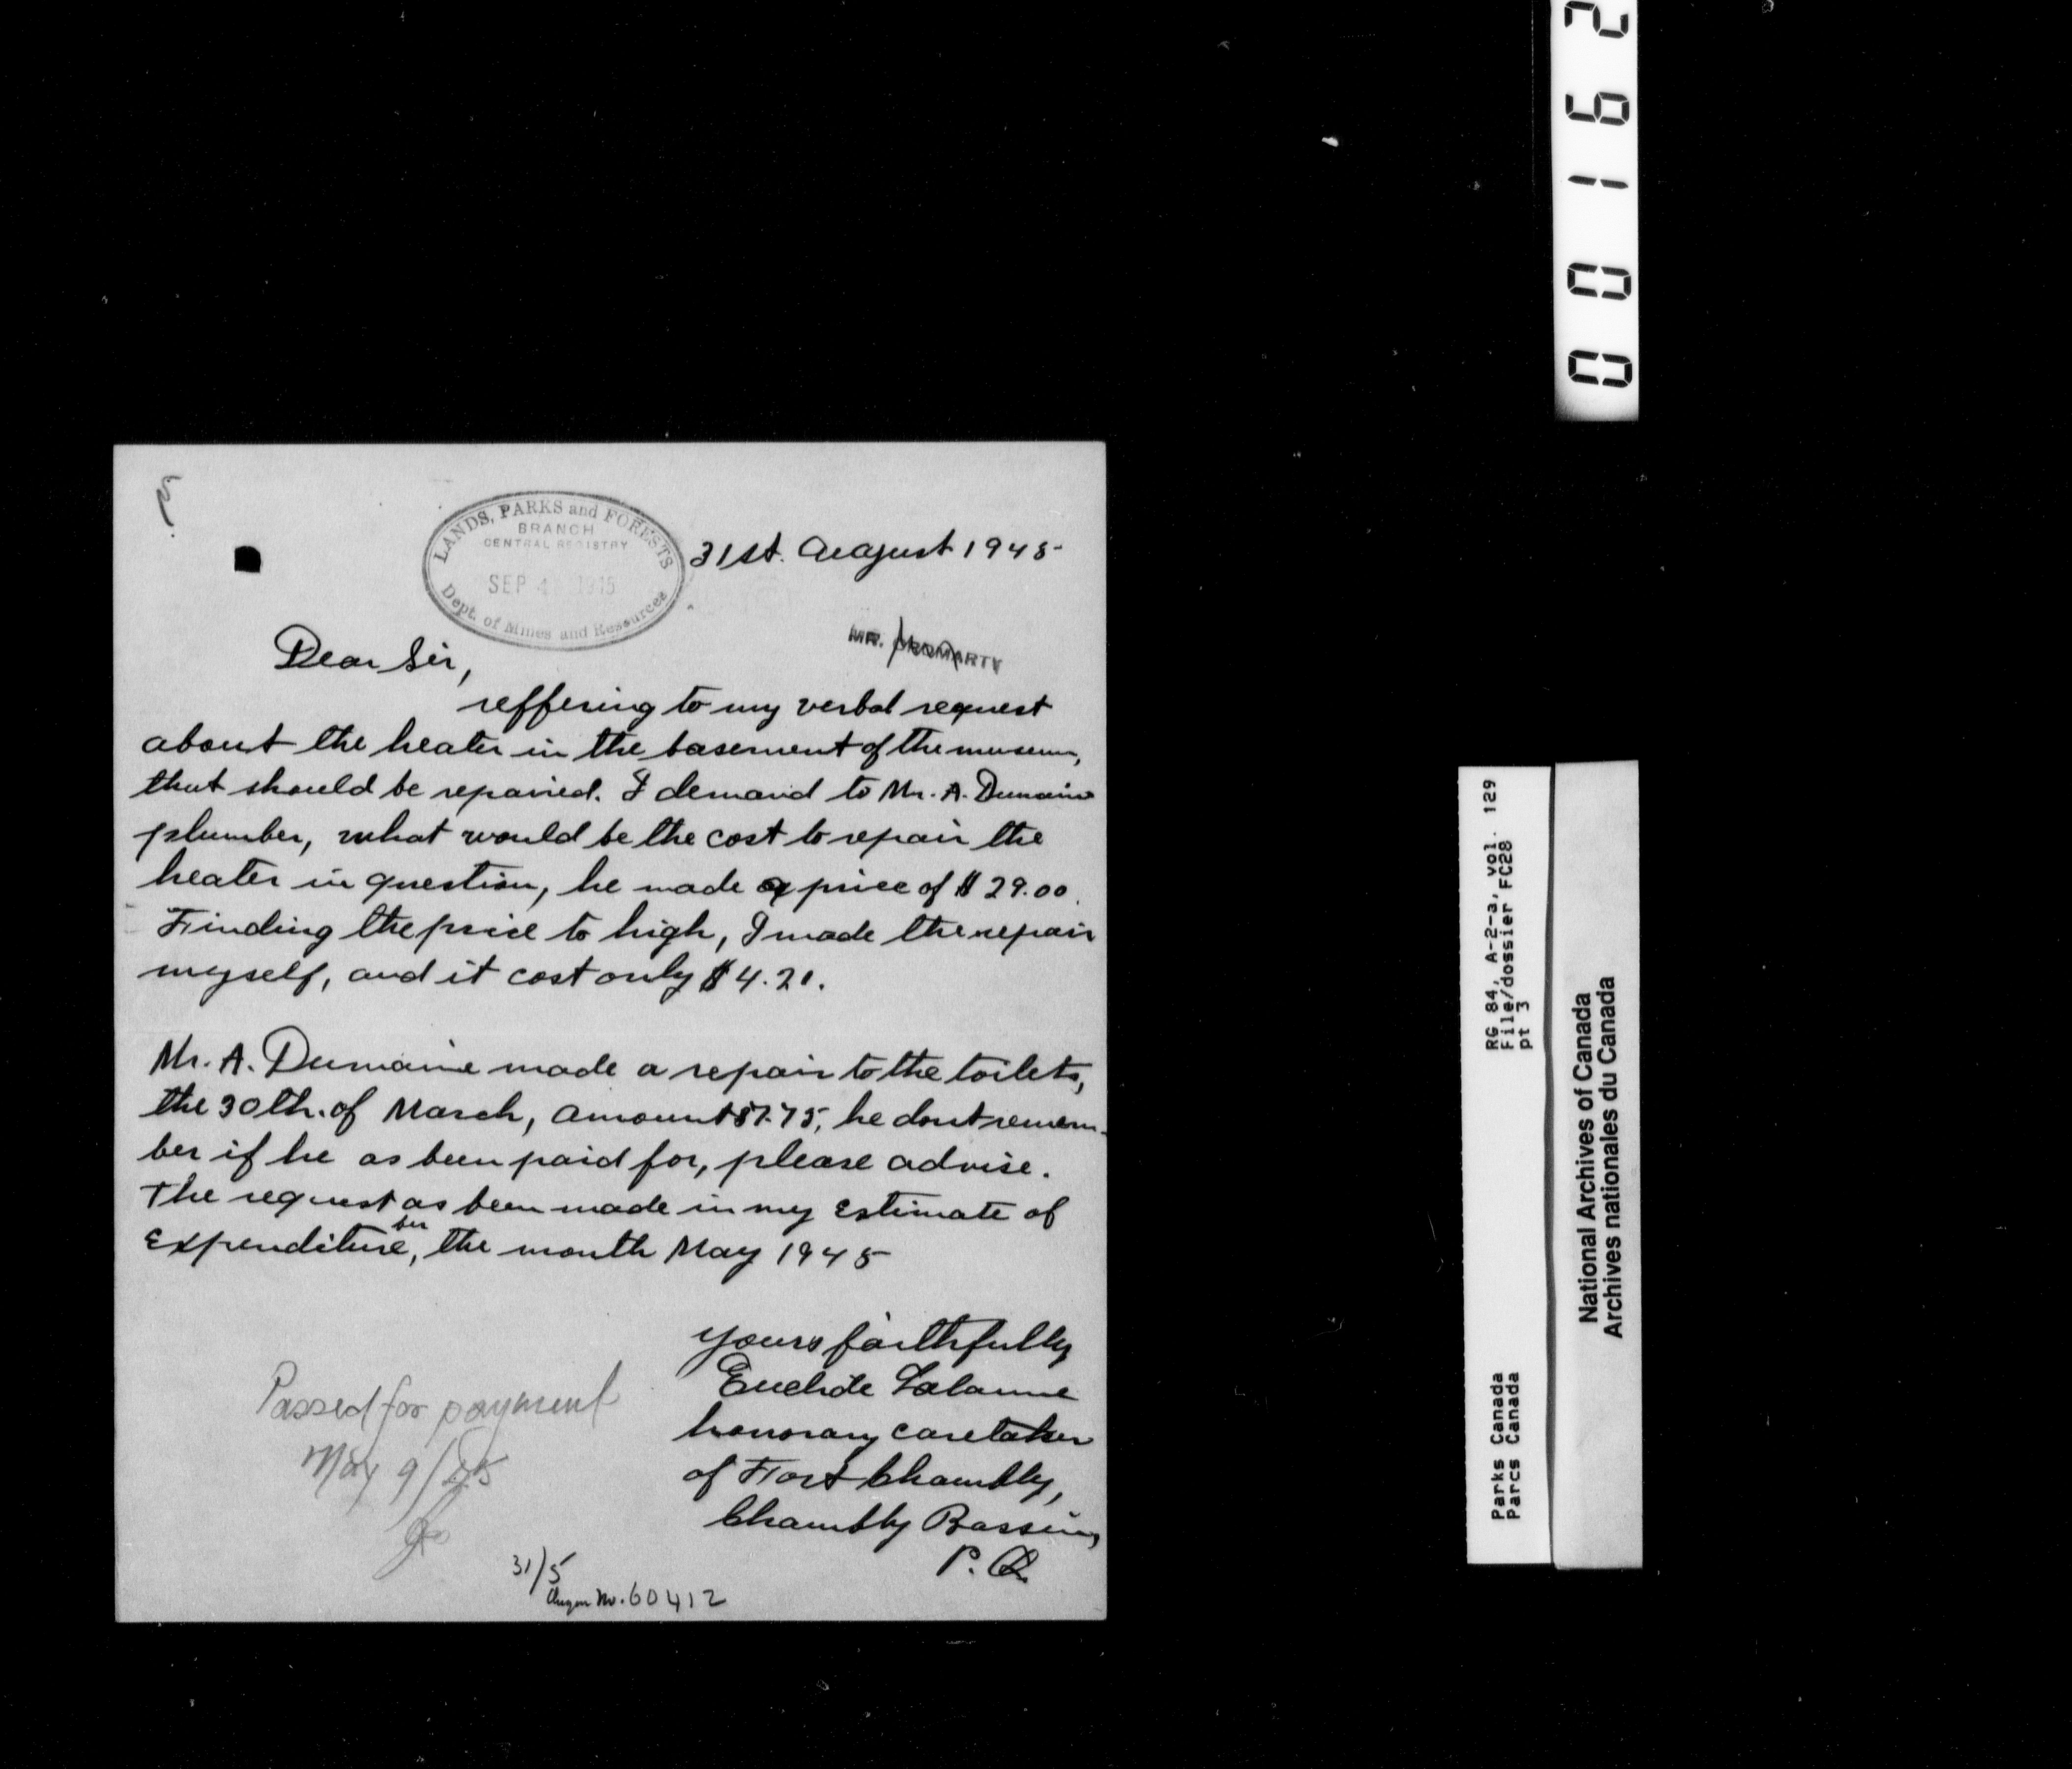 LANDS, PARKS and FORESTS
BRANCH
CENTRAL REGISTRY
SEP 4 1945
Dept. of Mines and Resources
31st. August 1945
MR. CROMARTY
Dear Sir,
reffering to my verbal request
about the heater in the basement of the museum,
that should be repaired. I demand to Mr. A. Dumaine
plumber, what would be the cost to repair the
heater in question, he made a price of $ 29.00.
Finding the price to high, I made the repair
myself, and it cost only $ 4.21.
Mr. A. Dumaine made a repair to the toilets,
the 30th. of March, amount $7.75, he dont remem-
ber if he as been paid for, please advise.
The request as been made in my Estimate of
Expenditure, for the month May 1945
yours faithfully
Euclide Lalanne
honorary caretaker
of Fort Chambly,
Chambly Bassin,
P. Q.
Passed for payment
May 9/45
31/5
No. 60412
00162
RG 84, A-2-a, vol. 129
File/dossier FC28
pt 3
Parks Canada
Parcs Canada
National Archives of Canada
Archives nationales du Canada